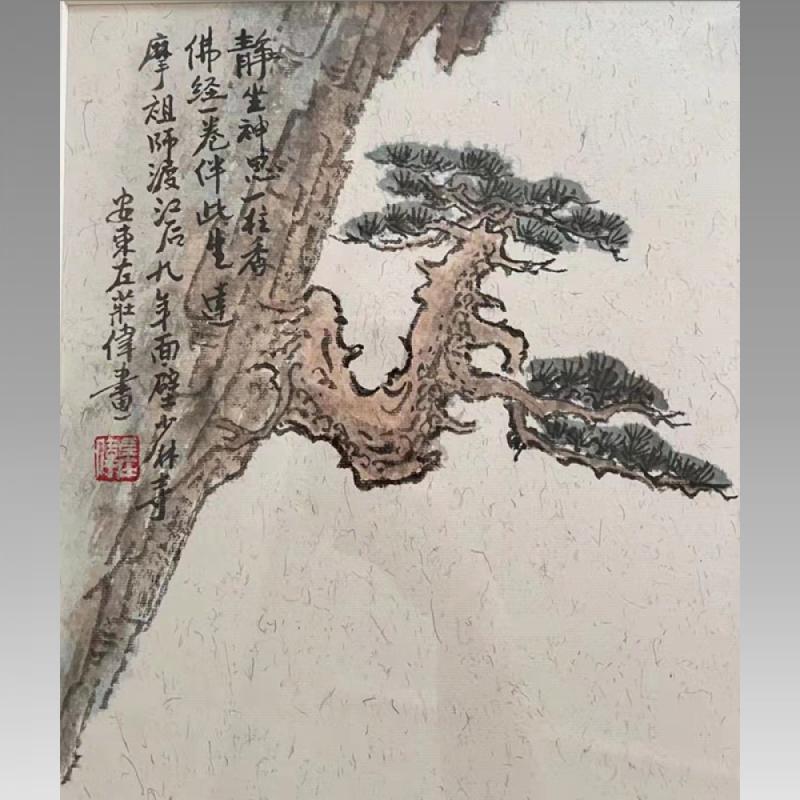 静坐神思一柱香
佛经一卷伴此生 達
摩祖師渡江后九年面壁少林寺
安東左莊偉畫